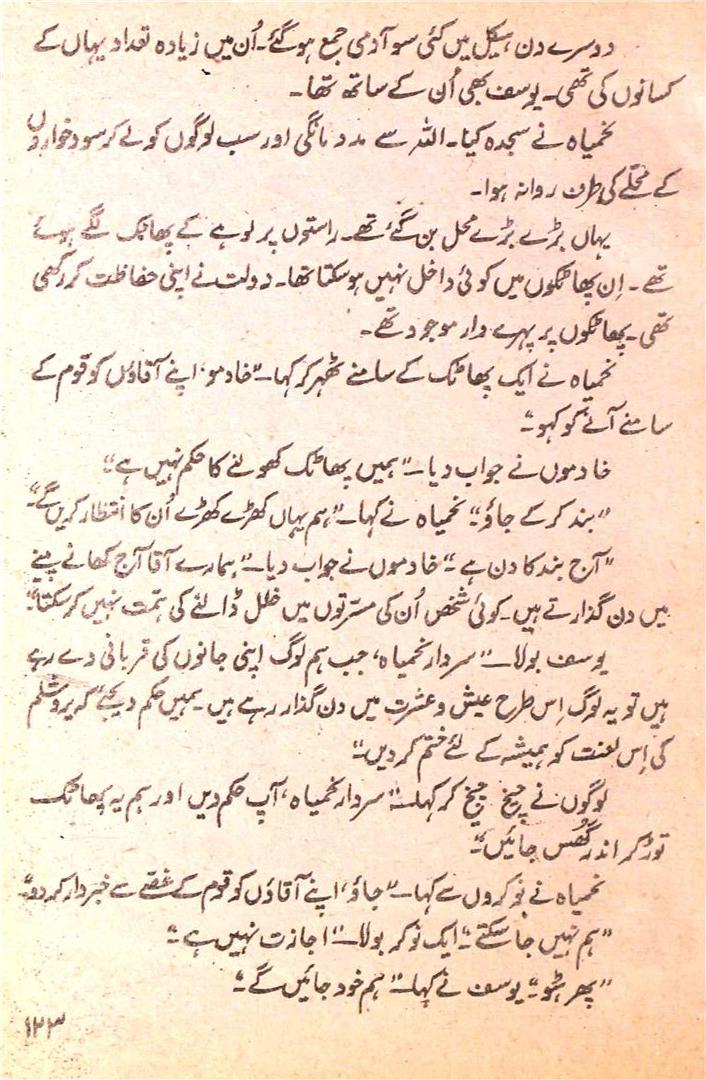 دوسرے دن ہیکل میں کئی سو آدمی جمع ہو گئے۔ اُن میں زیادہ تعداد یہاں کے
کسانوں کی تھی۔ یوسف بھی اُن کے ساتھ تھا۔
نحمیاہ نے سجدہ کیا۔ اللہ سے مدد مانگی اور سب لوگوں کو لے کر سود خواروں
کے محلّے کی طرف روانہ ہوا۔
یہاں بڑے بڑے محل بن گئے تھے۔ راستوں پر لوہے کے پھاٹک لگے ہوئے
تھے۔ اِن پھاٹکوں میں کوئی داخل نہیں ہو سکتا تھا۔ دولت نے اپنی حفاظت کر رکھی
تھی۔ پھاٹکوں پر پہرے دار موجود تھے۔
نحمیاہ نے ایک پھاٹک کے سامنے ٹھہر کر کہا۔ "خادمو، اپنے آقاؤں کو قوم کے
سامنے آنے کو کہو"۔
خادموں نے جواب دیا۔ "ہمیں پھاٹک کھولنے کا حکم نہیں ہے"۔
"بند کر کے جاؤ"۔ نحمیاہ نے کہا۔ "ہم یہاں کھڑے کھڑے اُن کا انتظار کریں گے"۔
"آج بند کا دن ہے"۔ خادموں نے جواب دیا۔ "ہمارے آقا آج کھانے پینے
میں دن گذارتے ہیں۔ کوئی شخص اُن کی مسرّتوں میں خلل ڈالنے کی ہمّت نہیں کر سکتا"۔
یوسف بولا۔ "سردار نحمیاہ، جب ہم لوگ اپنی جانوں کی قربانی دے رہے
ہیں تو یہ لوگ اِس طرح عیش و عشرت میں دن گذار رہے ہیں۔ ہمیں حکم دیجئے کہ یروشلم
کی اِس لعنت کو ہمیشہ کے لئے ختم کر دیں"۔
لوگوں نے چیخ چیخ کر کہا۔ "سردار نحمیاہ، آپ حکم دیں اور ہم یہ پھاٹک
توڑ کر اندر گھُس جائیں"۔
نحمیاہ نے نوکروں سے کہا۔ "جاؤ، اپنے آقاؤں کو قوم کے غصّے سے خبردار کر دو"۔
"ہم نہیں جا سکتے"۔ ایک نوکر بولا۔ "اجازت نہیں ہے"۔
"پھر ہٹو"۔ یوسف نے کہا۔ "ہم خود جائیں گے"۔
۱۲۳